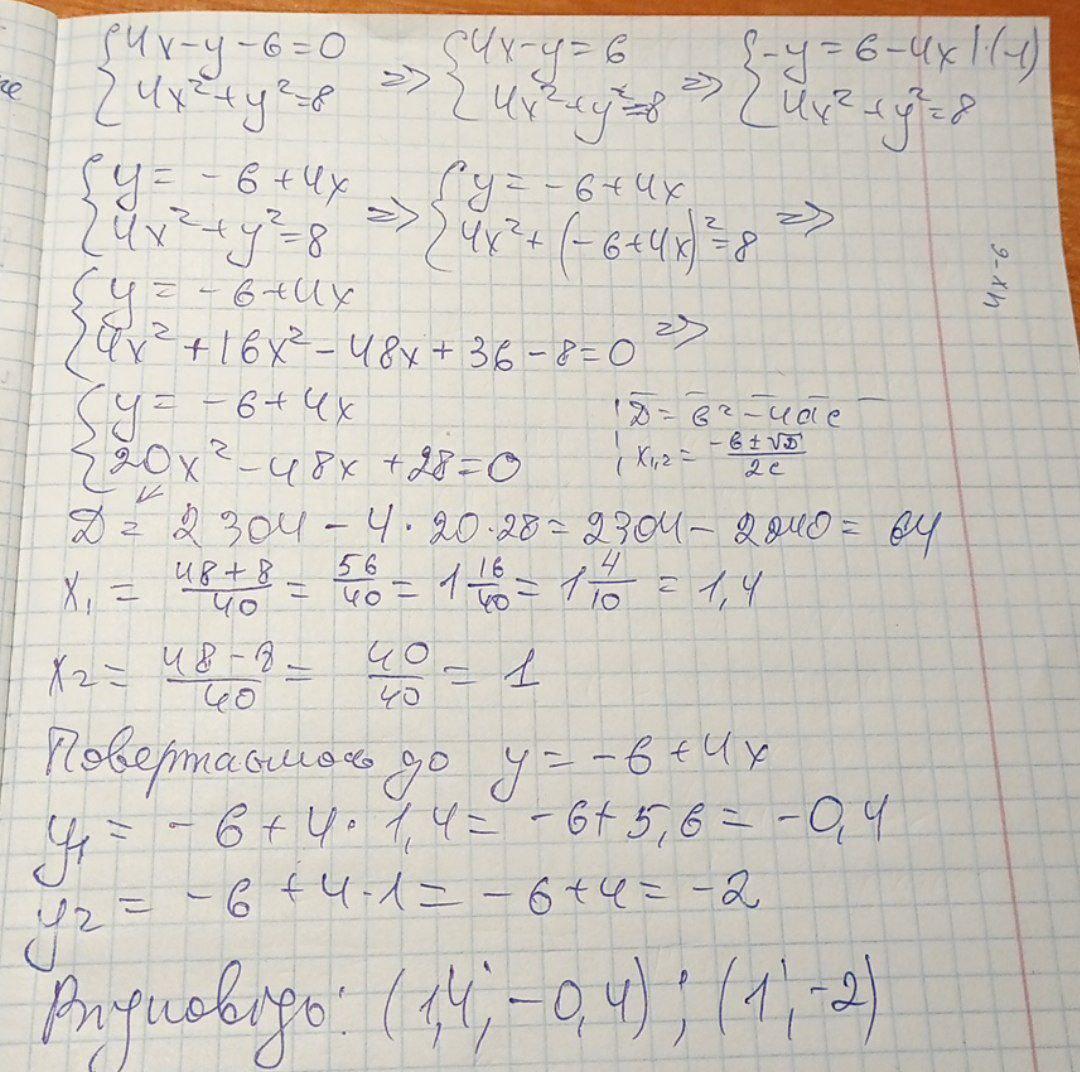 {4x-y-6=0 => {4x-y=6 => {-y=6-4x |·(-1)
{4x²+y²=8 {4x²+y²=8 {4x²+y²=8
{y=-6+4x => {y=-6+4x =>
{4x²+y²=8 {4x²+(-6+4x)²=8
4x-6
{y=-6+4x =>
{4x²+16x²-48x+36-8=0
{y=-6+4x
{20x²-48x+28=0
D=b²-4ac
x₁,₂=(-b±√D)/2c
D=2304-4·20·28=2304-2240=64
x₁=(48+8)/40=56/40=1 16/40=1 4/10=1,4
x₂=(48-8)/40=40/40=1
Повертаємось до y=-6+4x
y₁=-6+4·1,4=-6+5,6=-0,4
y₂=-6+4·1=-6+4=-2
Відповідь: (1,4; -0,4); (1; -2)